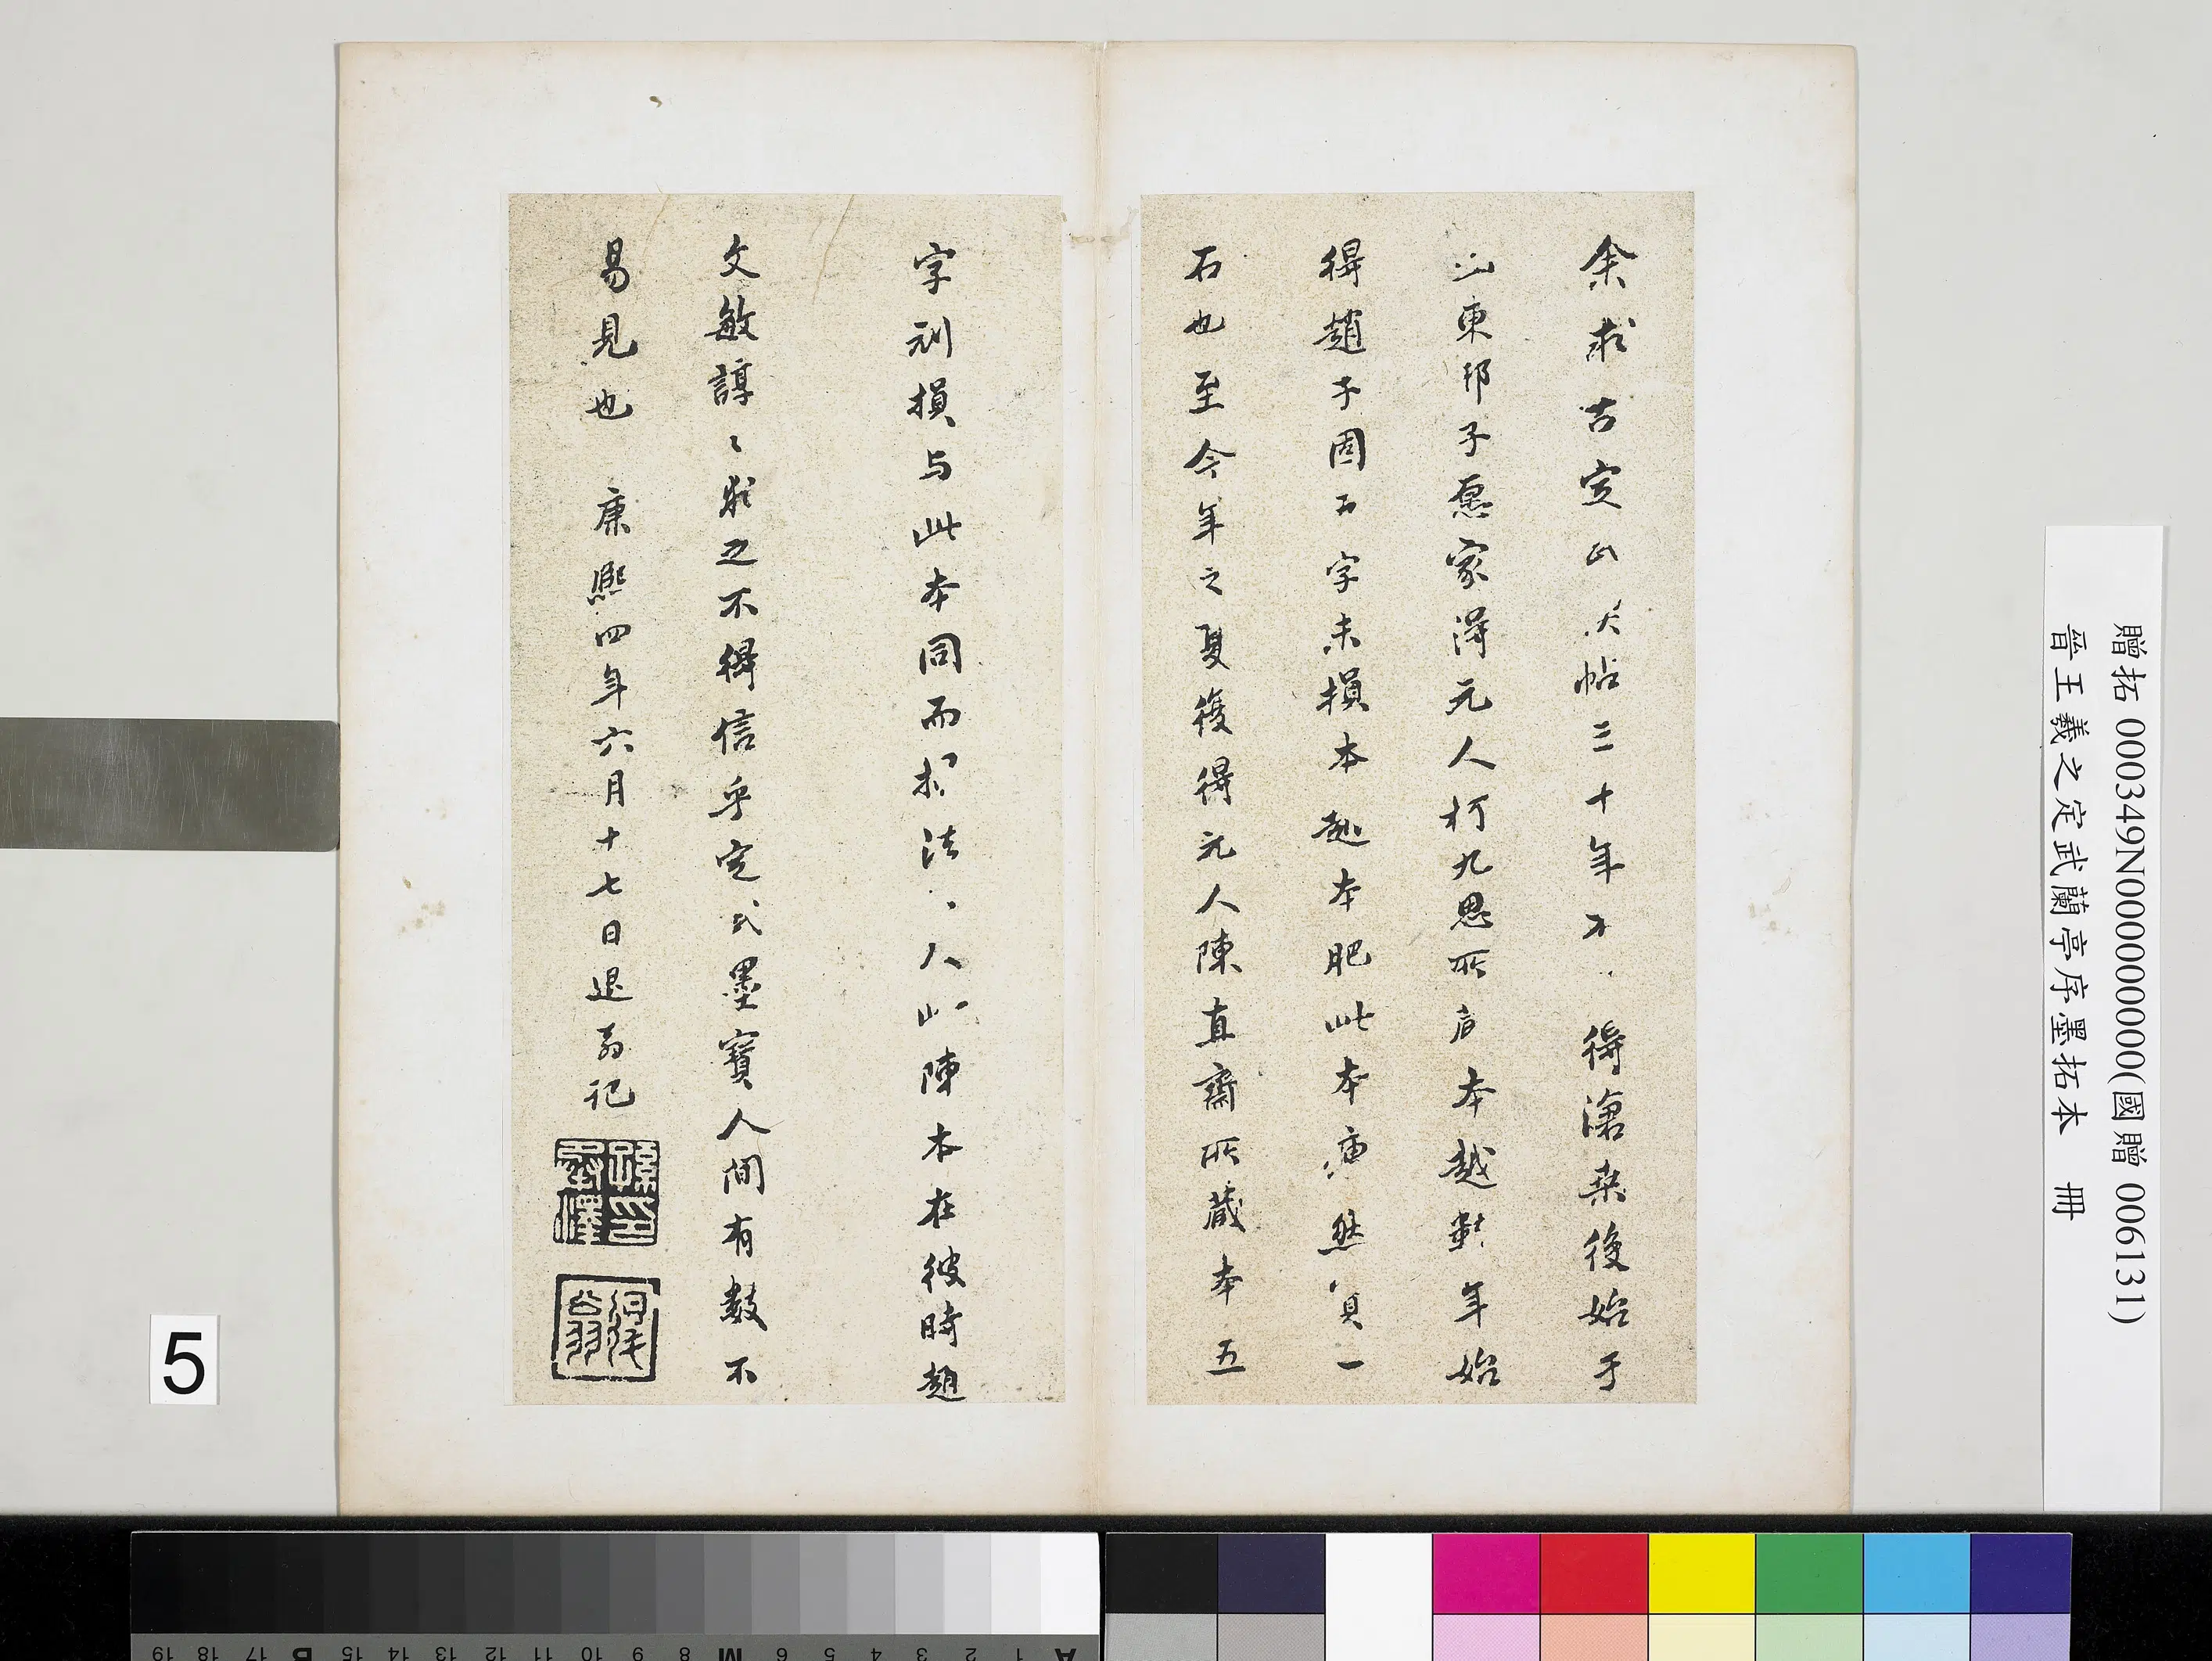 余求古定武帖三十年不得滄桑後始于
山東邢子愿家得元人柯九思所本越數年始
得趙子固五字未損本趙本肥此本瘦然實一
石也至今年之夏復得元人陳直齋所藏本五
字刓損与此本同而搨法人此陳本在彼時趙
文敏諄々求之不得信乎定武墨寶人間有數不
易見也 康熙四年六月十七日退翁記
贈拓 000349N000000000(國贈 006131)
晉王羲之定武蘭亭序墨拓本 冊
5
A 1 2 3 4 5 6 M 8 9 10 11 12 13 14 15 B 17 18 19